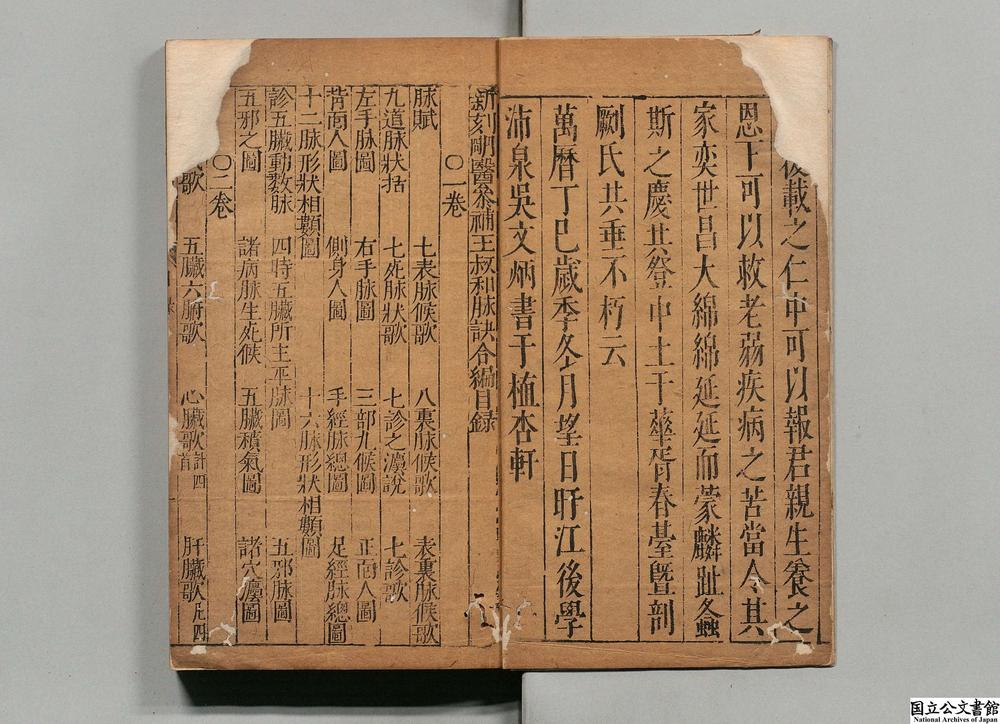 後載之仁中可以報君親生養之
恩下可以救老弱疾病之苦當令其
家奕世昌大綿綿延延而蒙麟趾螽
斯之慶共登中土于華胥春臺曁剖
劂氏共垂不朽云
萬曆丁巳歲季冬月望日旴江後學
沛泉吳文炳書于植杏軒
新刻明醫叅補王叔和脉訣合編目錄
〇一卷
脉賦 七表脉候歌 八裏脉候歌 表裏脉候歌
九道脉狀括 七死脉狀歌 七診之灋說 七診歌
左手脉圖 右手脉圖 三部九候圖 正面人圖
背面人圖 側身人圖 手經脉總圖 足經脉總圖
十二脉形狀相類圖 十六脉形狀相類圖
診五臟動數脉 四時五臟所主平脉圖 五邪脉圖
五邪之圖 諸病脉生死候 五臟積氣圖 諸穴灋圖
〇二卷
歌 五臟六腑歌 心臟歌計四首 肝臟歌凡四
国立公文書館
National Archives of Japan